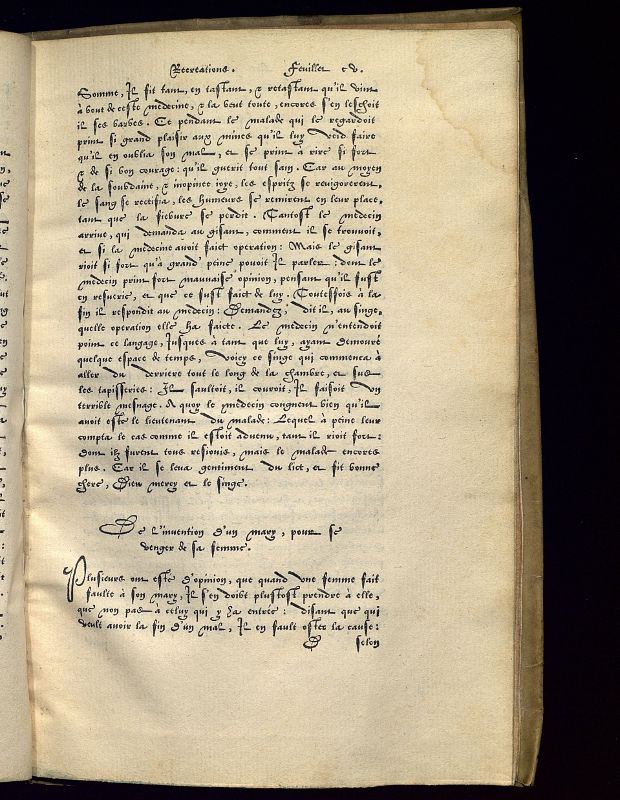 Recreations. Feuillet cv.
Somme, Il fit tant, en tastant, & retastant qu'il vint
à bout de ceste medecine, & la beut toute, encores s'en leschoit
il ses barbes. Ce pendant le malade qui le regardoit
print si grand plaisir aux mines qu'il luy veid faire
qu'il en oublia son mal, et se print à rire si fort
& de si bon courage: qu'il guerit tout sain. Car au moyen
de la soubdaine, & inopinee ioye, les espritz se revigorerent,
le sang se rectifia, les humeurs se remirent en leur place,
tant que la fiebure se perdit. Tantost le medecin
arrive, qui demanda au gisant, comment il se trouvoit,
et si la medecine avoit faict operation: Mais le gisant
rioit si fort qu'à grand' peine povoit Il parler: dont le
medecin print fort mauvaise opinion, pensant qu'il fust
en resverie, et que ce fust faict de luy. Toutesfois à la
fin il respondit au medecin: Demandez, dit il, au singe,
quelle operation elle ha faicte. Le medecin n'entendoit
point ce langage, Iusques à tant que luy, ayant demouré
quelque espace de temps, voicy ce singe qui commença à
aller du derriere tout le long de la chambre, et sus
les tapisseries: Il saultoit, il couroit, Il faisoit un
terrible mesnage. A quoy le medecin congneut bien qu'il
avoit esté le lieutenant du malade: Lequel à peine leur
compta le cas comme il estoit advenu, tant il rioit fort:
Dont ilz furent tous resiouis, mais le malade encores
plus. Car il se leva gentiment du lict, et fit bonne
chere, Dieu mercy et le singe.
De l'invention d'un mary, pour se
venger de sa femme.
Plusieurs ont esté d'opinion, que quand une femme fait
faulte à son mary, Il s'en doibt plustost prendre à elle,
que non pas à celuy qui y ha entrée: disant que qui
veult avoir la fin d'un mal, Il en fault oster la cause:
D selon